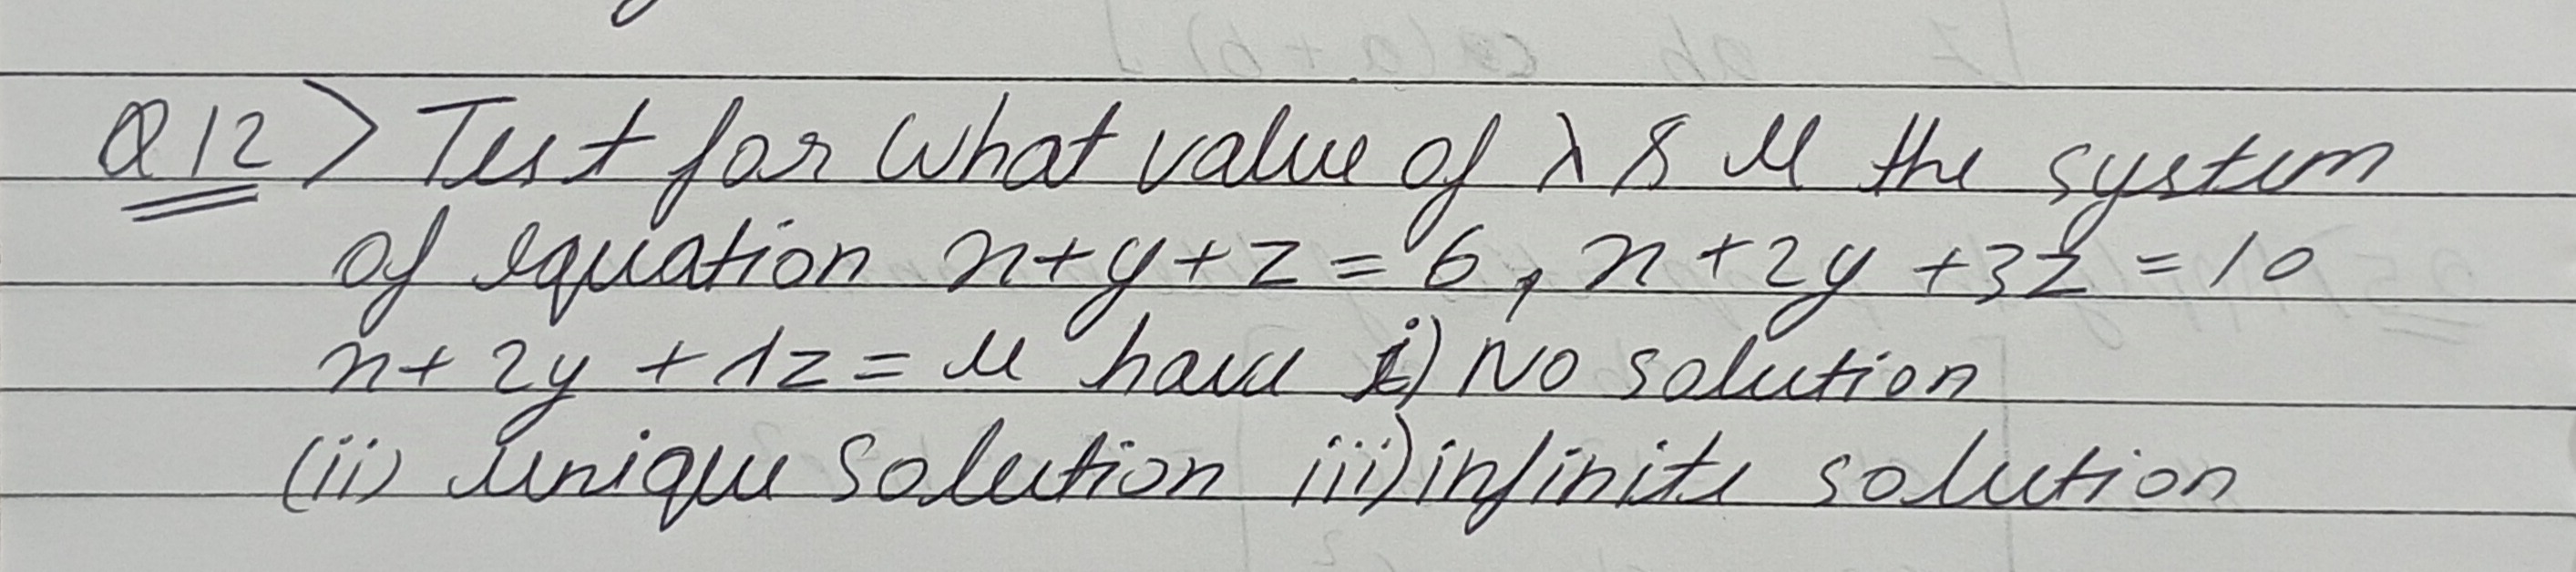 Q12> Test for what value of λ & μ the system
of equation x+y+z=6, x+2y+3z=10
x+2y+λz=μ have i) No solution
(ii) unique solution iii) infinite solution